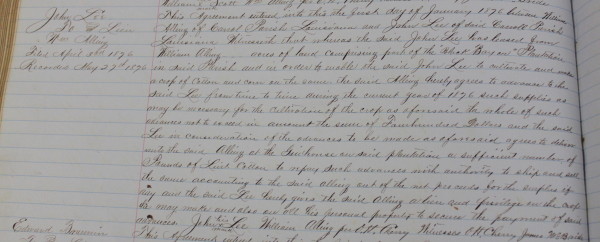 John Lee
To } Lien
Wm Alling
Filed April 5th 1876
Recorded May 27th 1876
This Agreement entered into this the first day of January 1876 between William
Alling of Carroll Parish Louisiana and John Lee of said Carroll Parish
Louisiana Witnesseth that whereas the said John Lee has leased from
William Alling acres of land comprising part of the Plantation
in said Parish and in order to enable the said John Lee to cultivate and make
a crop of Cotton and corn on the same the said Alling hereby agrees to advance to the
said Lee from time to time during the current year of 1876 such supplies as
may be necessary for the cultivation of the crop as aforesaid the whole of such
advances not to exceed in amount the sum of Four hundred Dollars and the said
Lee in consideration of the advances to be made as aforesaid agrees to deliver
unto the said Alling at the Ginhouse on said plantation a sufficient number of
Pounds of Lint Cotton to repay such advances with authority to ship and sell
the same accounting to the said Alling out of the net proceeds for the surplus if
any and the said Lee hereby gives the said Alling a lien and privilege on the crop
he may make and also on all his personal property to secure the payment of said
advances John Lee William Alling per Witnesses James McBride
Edward
This Agreement entered into